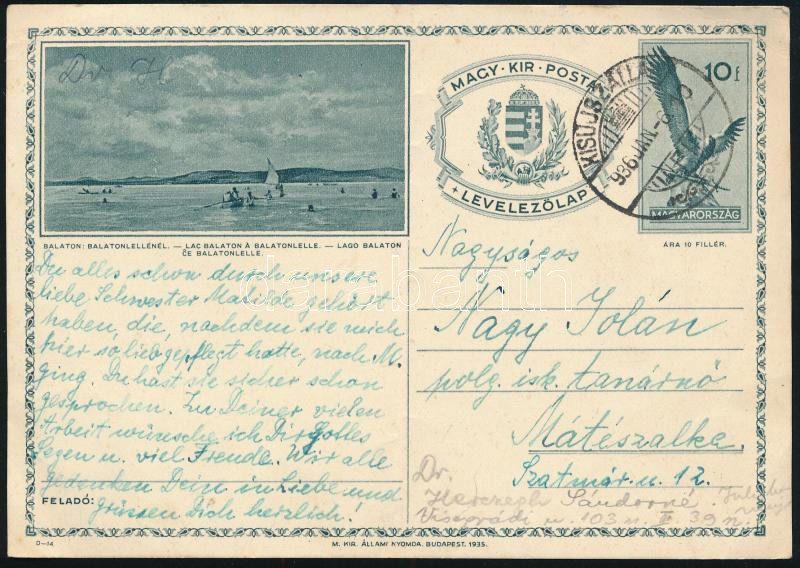 Dr. H
MAGY · KIR · POSTA
LEVELEZŐLAP
KISÚJSZÁLLÁS
936 JAN.-8
10 f
MAGYARORSZÁG
ÁRA 10 FILLÉR.
BALATON: BALATONLELLÉNÉL. — LAC BALATON À BALATONLELLE. — LAGO BALATON
ĈE BALATONLELLE.
Du alles schon durch unsere
liebe Schwester Matilde gehört
haben, die, nachdem sie mich
hier so lieb gepflegt hatte, nach M.
ging. Du hast sie sicher schon
gesprochen. Zu Deiner vielen
Arbeit wünsche ich Dir Gottes
Segen u. viel Freude. Wir alle
gedenken Dein in Liebe und
Grüssen Dich herzlich!
FELADÓ:
Nagyságos
Nagy Jolán
polg. isk. tanárnő
Mátészalka
Szatmár u. 12.
Dr.
Herczegh Sándorné
Visegrádi u 103 II 39
darabanth
D—14
M. KIR. ÁLLAMI NYOMDA, BUDAPEST. 1935.